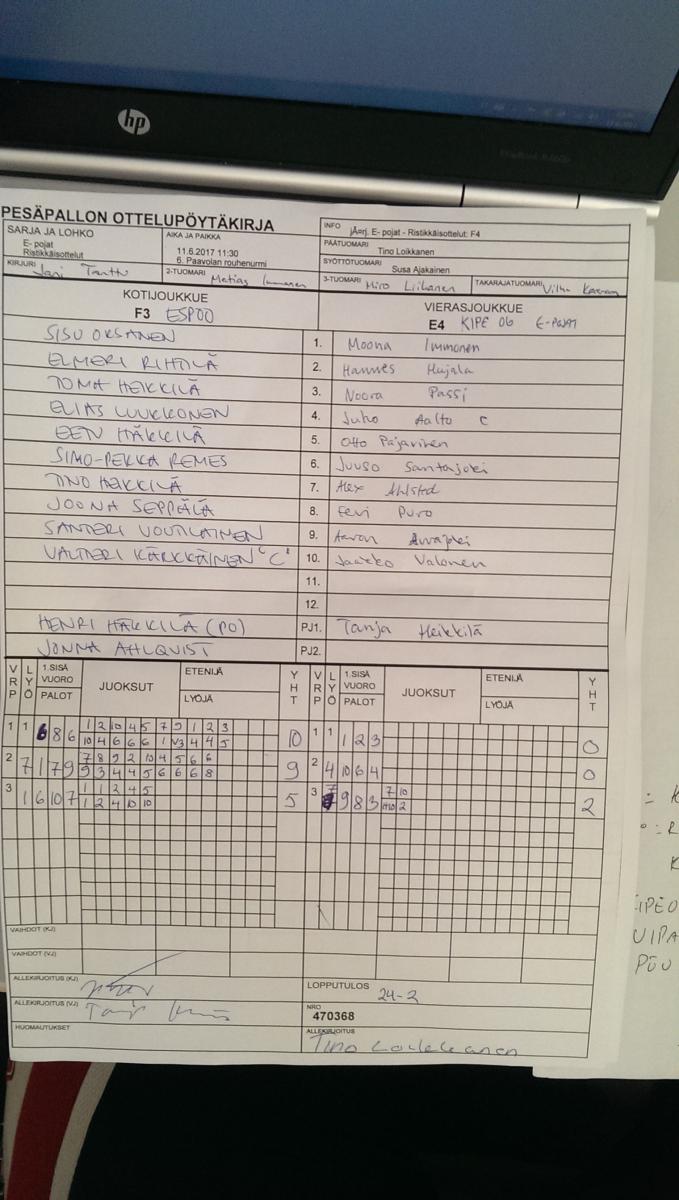 hp
PESÄPALLON OTTELUPÖYTÄKIRJA
SARJA JA LOHKO
E- pojat
Ristikkäisottelut
AIKA JA PAIKKA
11.6.2017 11:30
6. Paavolan rouhenurmi
INFO jÄrj. E- pojat - Ristikkäisottelut: F4
PÄÄTUOMARI
Tino Loikkanen
SYÖTTÖTUOMARI
Susa Ajakainen
KIRJURI Jari Tanttu
2-TUOMARI Matias Immonen
3-TUOMARI Miro Liihanen
TAKARAJATUOMARI
KOTIJOUKKUE
F3 ESPOO
VIERASJOUKKUE
E4 KIPE 06 E-POJAT
SISU OKSANEN 1. Moona Immonen
ELMERI RIHTILÄ 2. Hannes Hujala
TOMA HEIKKILÄ 3. Noora Passi
ELIAS LUUKKONEN 4. Juho Aalto C
EEN HÄKKILÄ 5. Otto Pajarinen
SIMO-PEKKA REMES 6. Juuso Santajoki
TINO HEIKKILÄ 7. Alex Ahlsted
JOONA SEPPÄLÄ 8. Eevi Puro
SANTERI VOUTILAINEN 9. Aaron
VALTTERI KÄRKKÄINEN "C" 10. Jaakko Valonen
11.
12.
HENRI HÄKKILÄ (PO) PJ1. Tanja Heikkilä
JONNA AHLQVIST PJ2.
VRP LYÖ 1.SISÄ VUORO PALOT JUOKSUT ETENIJÄ LYÖJÄ YHT VRP LYÖ 1.SISÄ VUORO PALOT JUOKSUT ETENIJÄ LYÖJÄ YHT
1 1 6 8 6 1 2 10 4 5 7 9 1 2 3 10 1 1 1 2 3 0
10 4 6 6 6 1 V3 4 4 5
2 7 1 7 9 7 8 9 2 10 4 5 6 6 9 2 4 10 6 4 0
9 3 4 4 5 6 6 6 8
3 1 6 10 7 1 1 2 4 5 5 3 7 9 8 3 7 10 2
1 2 4 10 10 2
VAIHDOT (KJ)
VAIHDOT (VJ)
ALLEKIRJOITUS (KJ)
LOPPUTULOS 24-2
ALLEKIRJOITUS (VJ)
NRO
470368
HUOMAUTUKSET
ALLEKIRJOITUS
Tino Loikkanen